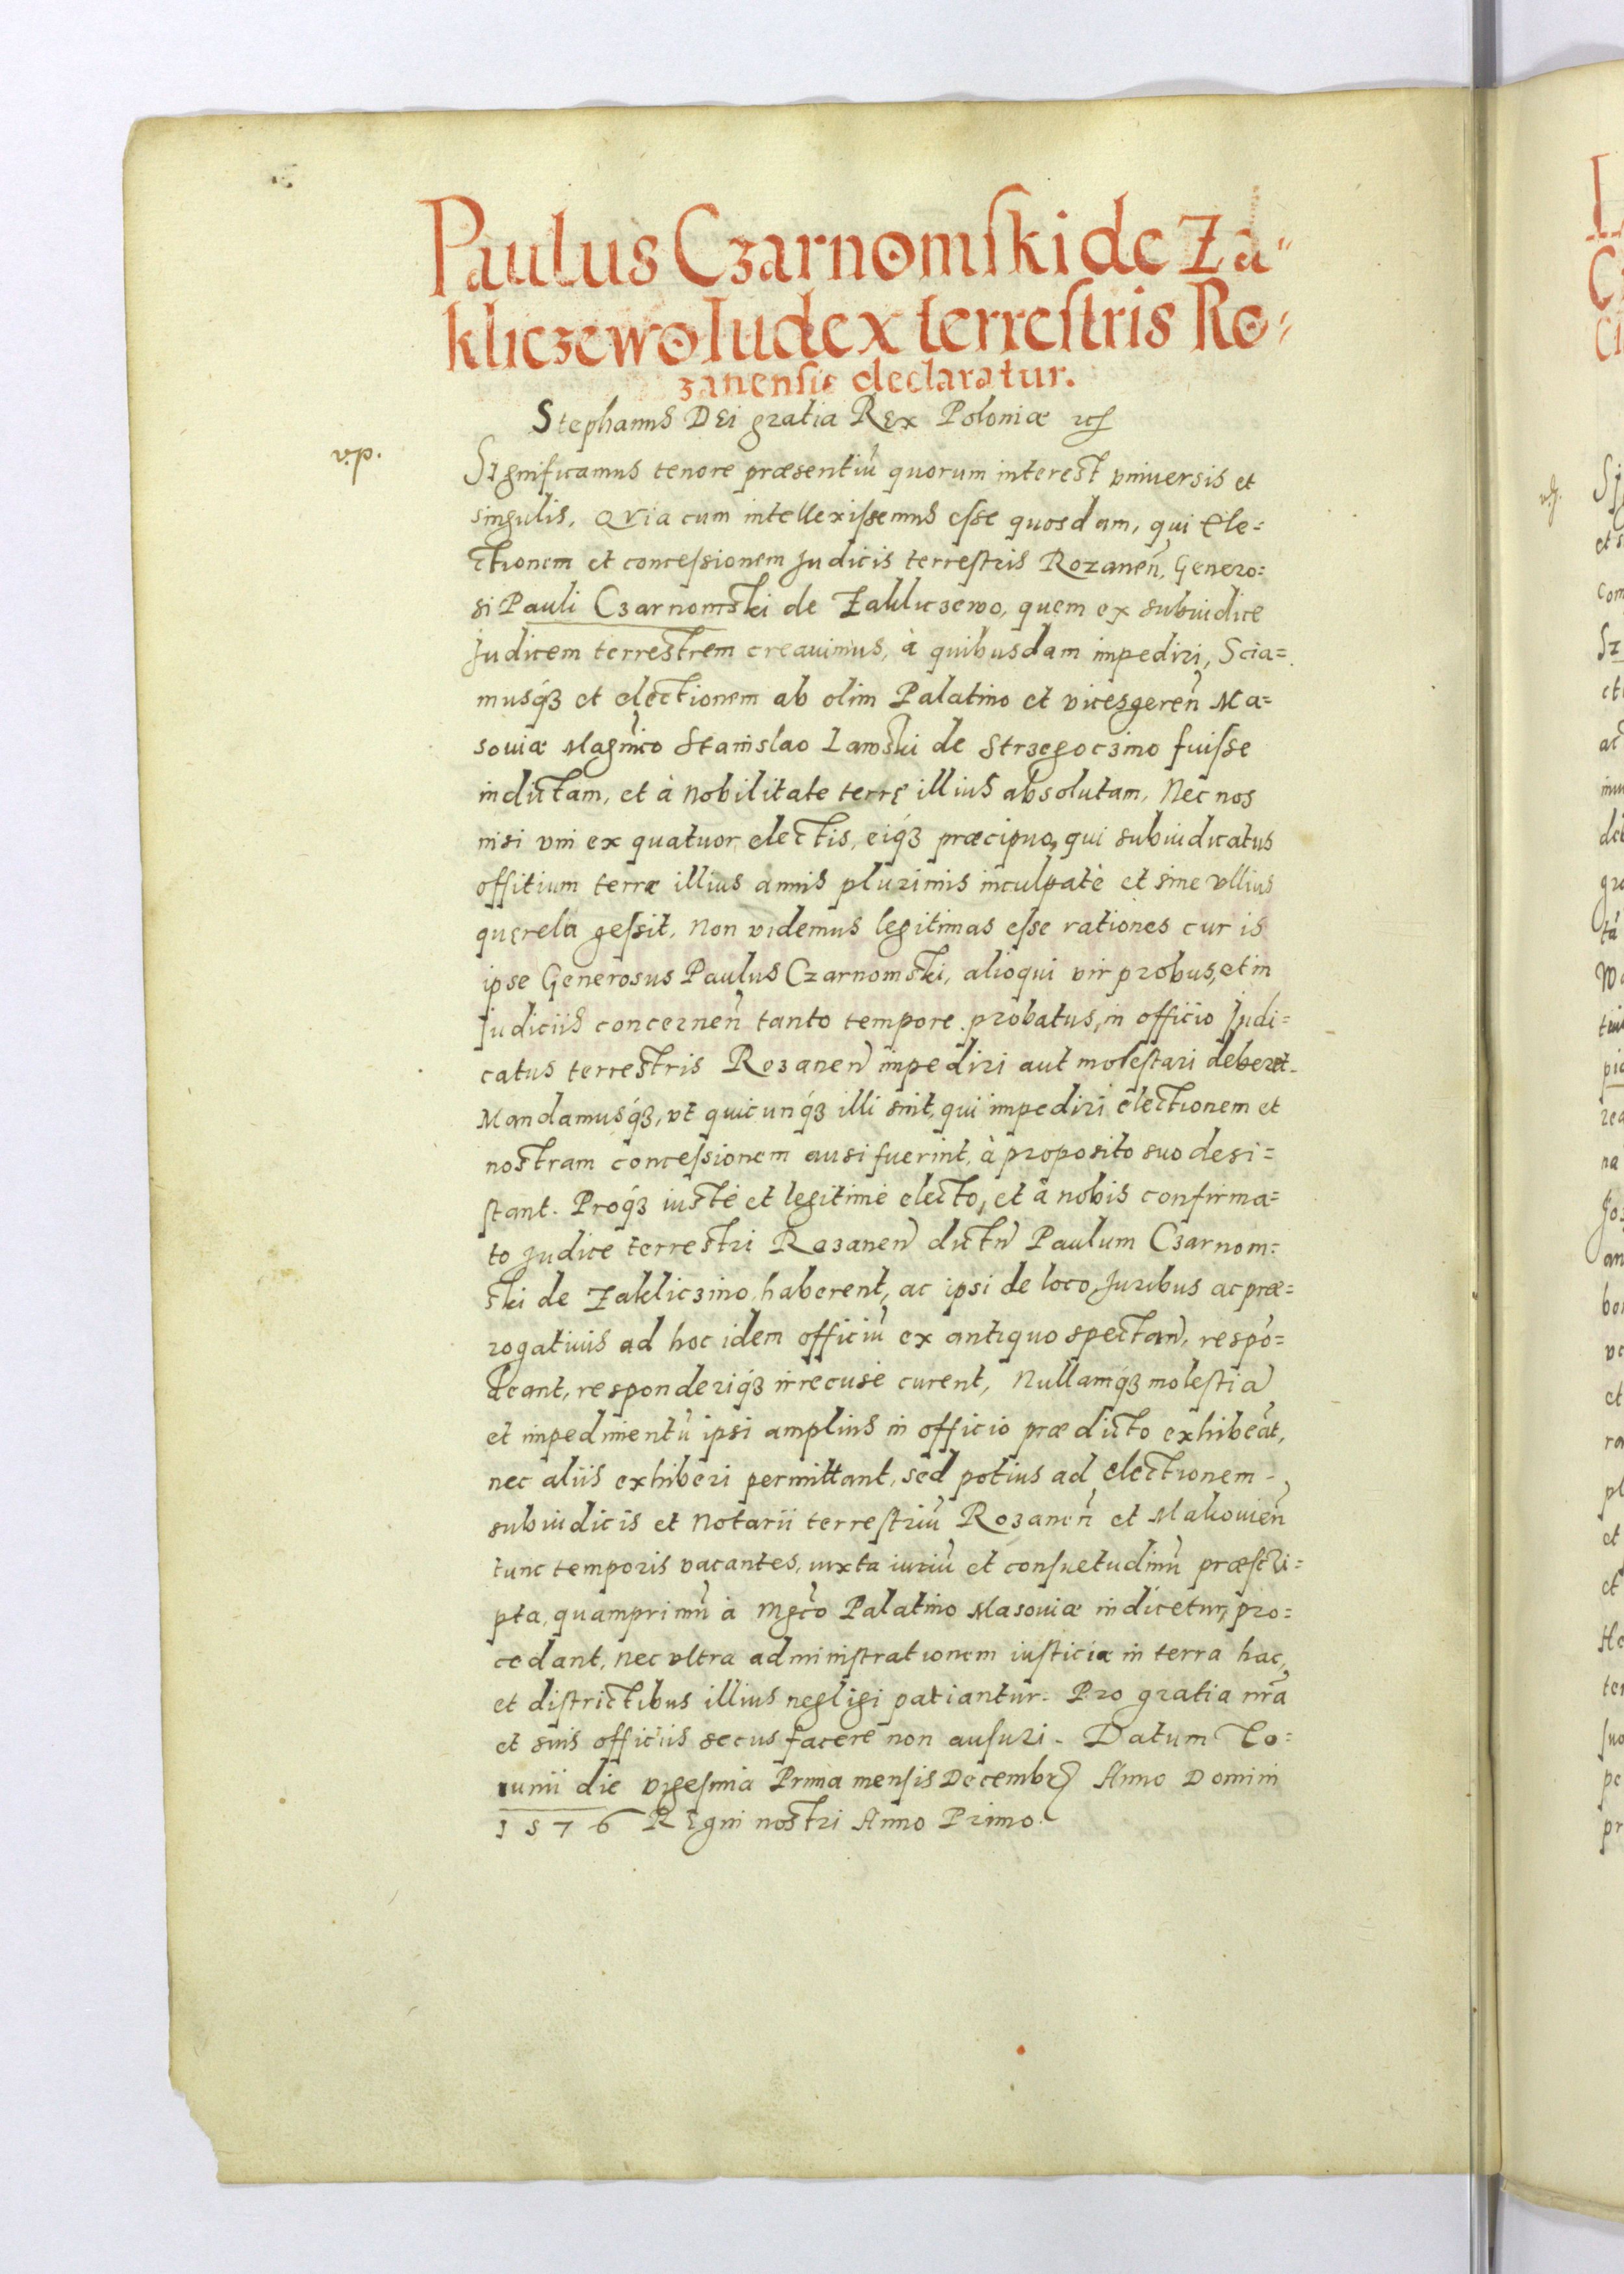 Paulus Czarnomſki de Za=
kliczewo Iudex terreſtris Ro=
zanenſis declaratur.
Stephanus DEi gratia REx Poloniæ
v.p.
SIgnificamus tenore præsentiũ quorum interest vniuersis et
singulis, QVia cum intellexiſsemus eſse quosdam, qui Ele=
ctionem et conceſsionem Judicis terreſtris Rozaneñ, Genero=
si Pauli Czarnomski de Zakliczewo, quem ex subiudice
Judicem terrestrem creauimus, à quibusdam impediri, Scia=
musq́ꝫ et electionem ab olim Palatino et vicesgereñ Ma=
souiæ Magñico Stanislao Lawski de Strzegoczino fuiſse
indictam, et à Nobilitate terrę illius absolutam, Nec nos
nisi vni ex quatuor electis, eiq́ꝫ præcipuo, qui subiudicatus
offitium terræ illius annis plurimis inculpatè et sine vllius
querela geſsit, Non videmus legitimas eſse rationes cur is
ipse Generosus Paulus Czarnomski, alioqui vir probus, et in
Judiciis concerneñ tanto tempore probatus, in officio Judi=
catus terrestris Rozaneñ impediri aut moleſtari deberet.
Mandamusq́ꝫ, vt quicunq́ꝫ illi sint, qui impediri electionem et
nostram conceſsionem ausi fuerint, à proposito suo desi=
ſtant. Proq́ꝫ iustè et legitimè electo, et à nobis confirma=
to Judice terrestri Rozaneñ dictñ Paulum Czarnom=
ski de Zakliczino haberent, ac ipsi de loco, Juribus ac præ=
rogatiuis ad hoc idem officiũ ex antiquo spectañ, respõ=
deant, responderiq́ꝫ irrecusè curent, Nullamq́ꝫ moleſtiã
et impedimentũ ipsi amplius in officio prædicto exhibeãt,
nec aliis exhiberi permittant, sed potius ad electionem
subiudicis et Notarii terreſtriũ Rozaneñ et Makouieñ
tunc temporis vacantes, iuxta iuriũ et conſuetudinũ præſcri=
pta, quamprimũ à Mgcõ Palatino Masouiæ indicetur, pro=
cedant, nec vltra adminiſtrationem iuſticiæ in terra hac,
et diſtrictibus illius negligi patiantur. Pro gratia nrã
et suis officiis secus facere non auſuri. Datum To=
runii die vigeſima Prima menſis Decembrꝭ Anno Domini
1576 REgni nostri Anno Primo.